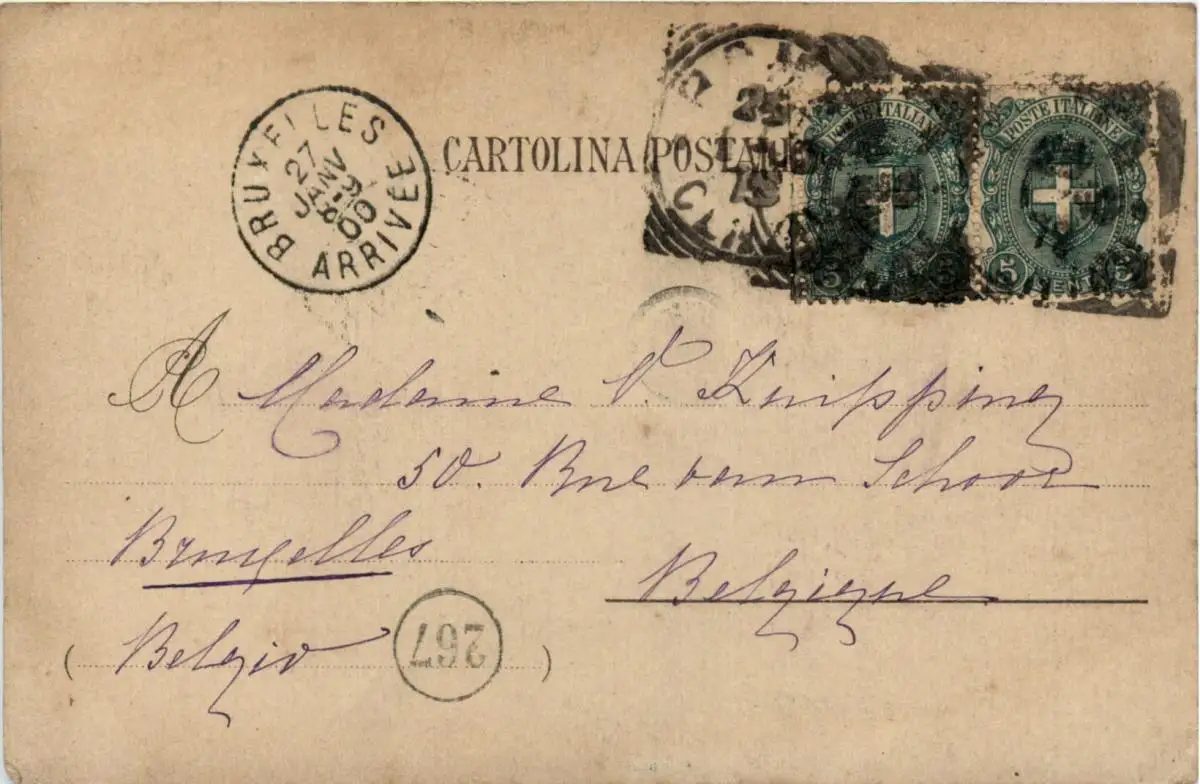 BRUXELLES
27
JANV
8-9
00
ARRIVEE
CARTOLINA POSTALE
ROMA
25
POSTE ITALIANE
5 CENT 5
POSTE ITALIANE
5 CENT 5
A Madame V. Knipping
50. Rue van Schoor
Bruxelles
Belgique
(Belgio)
267